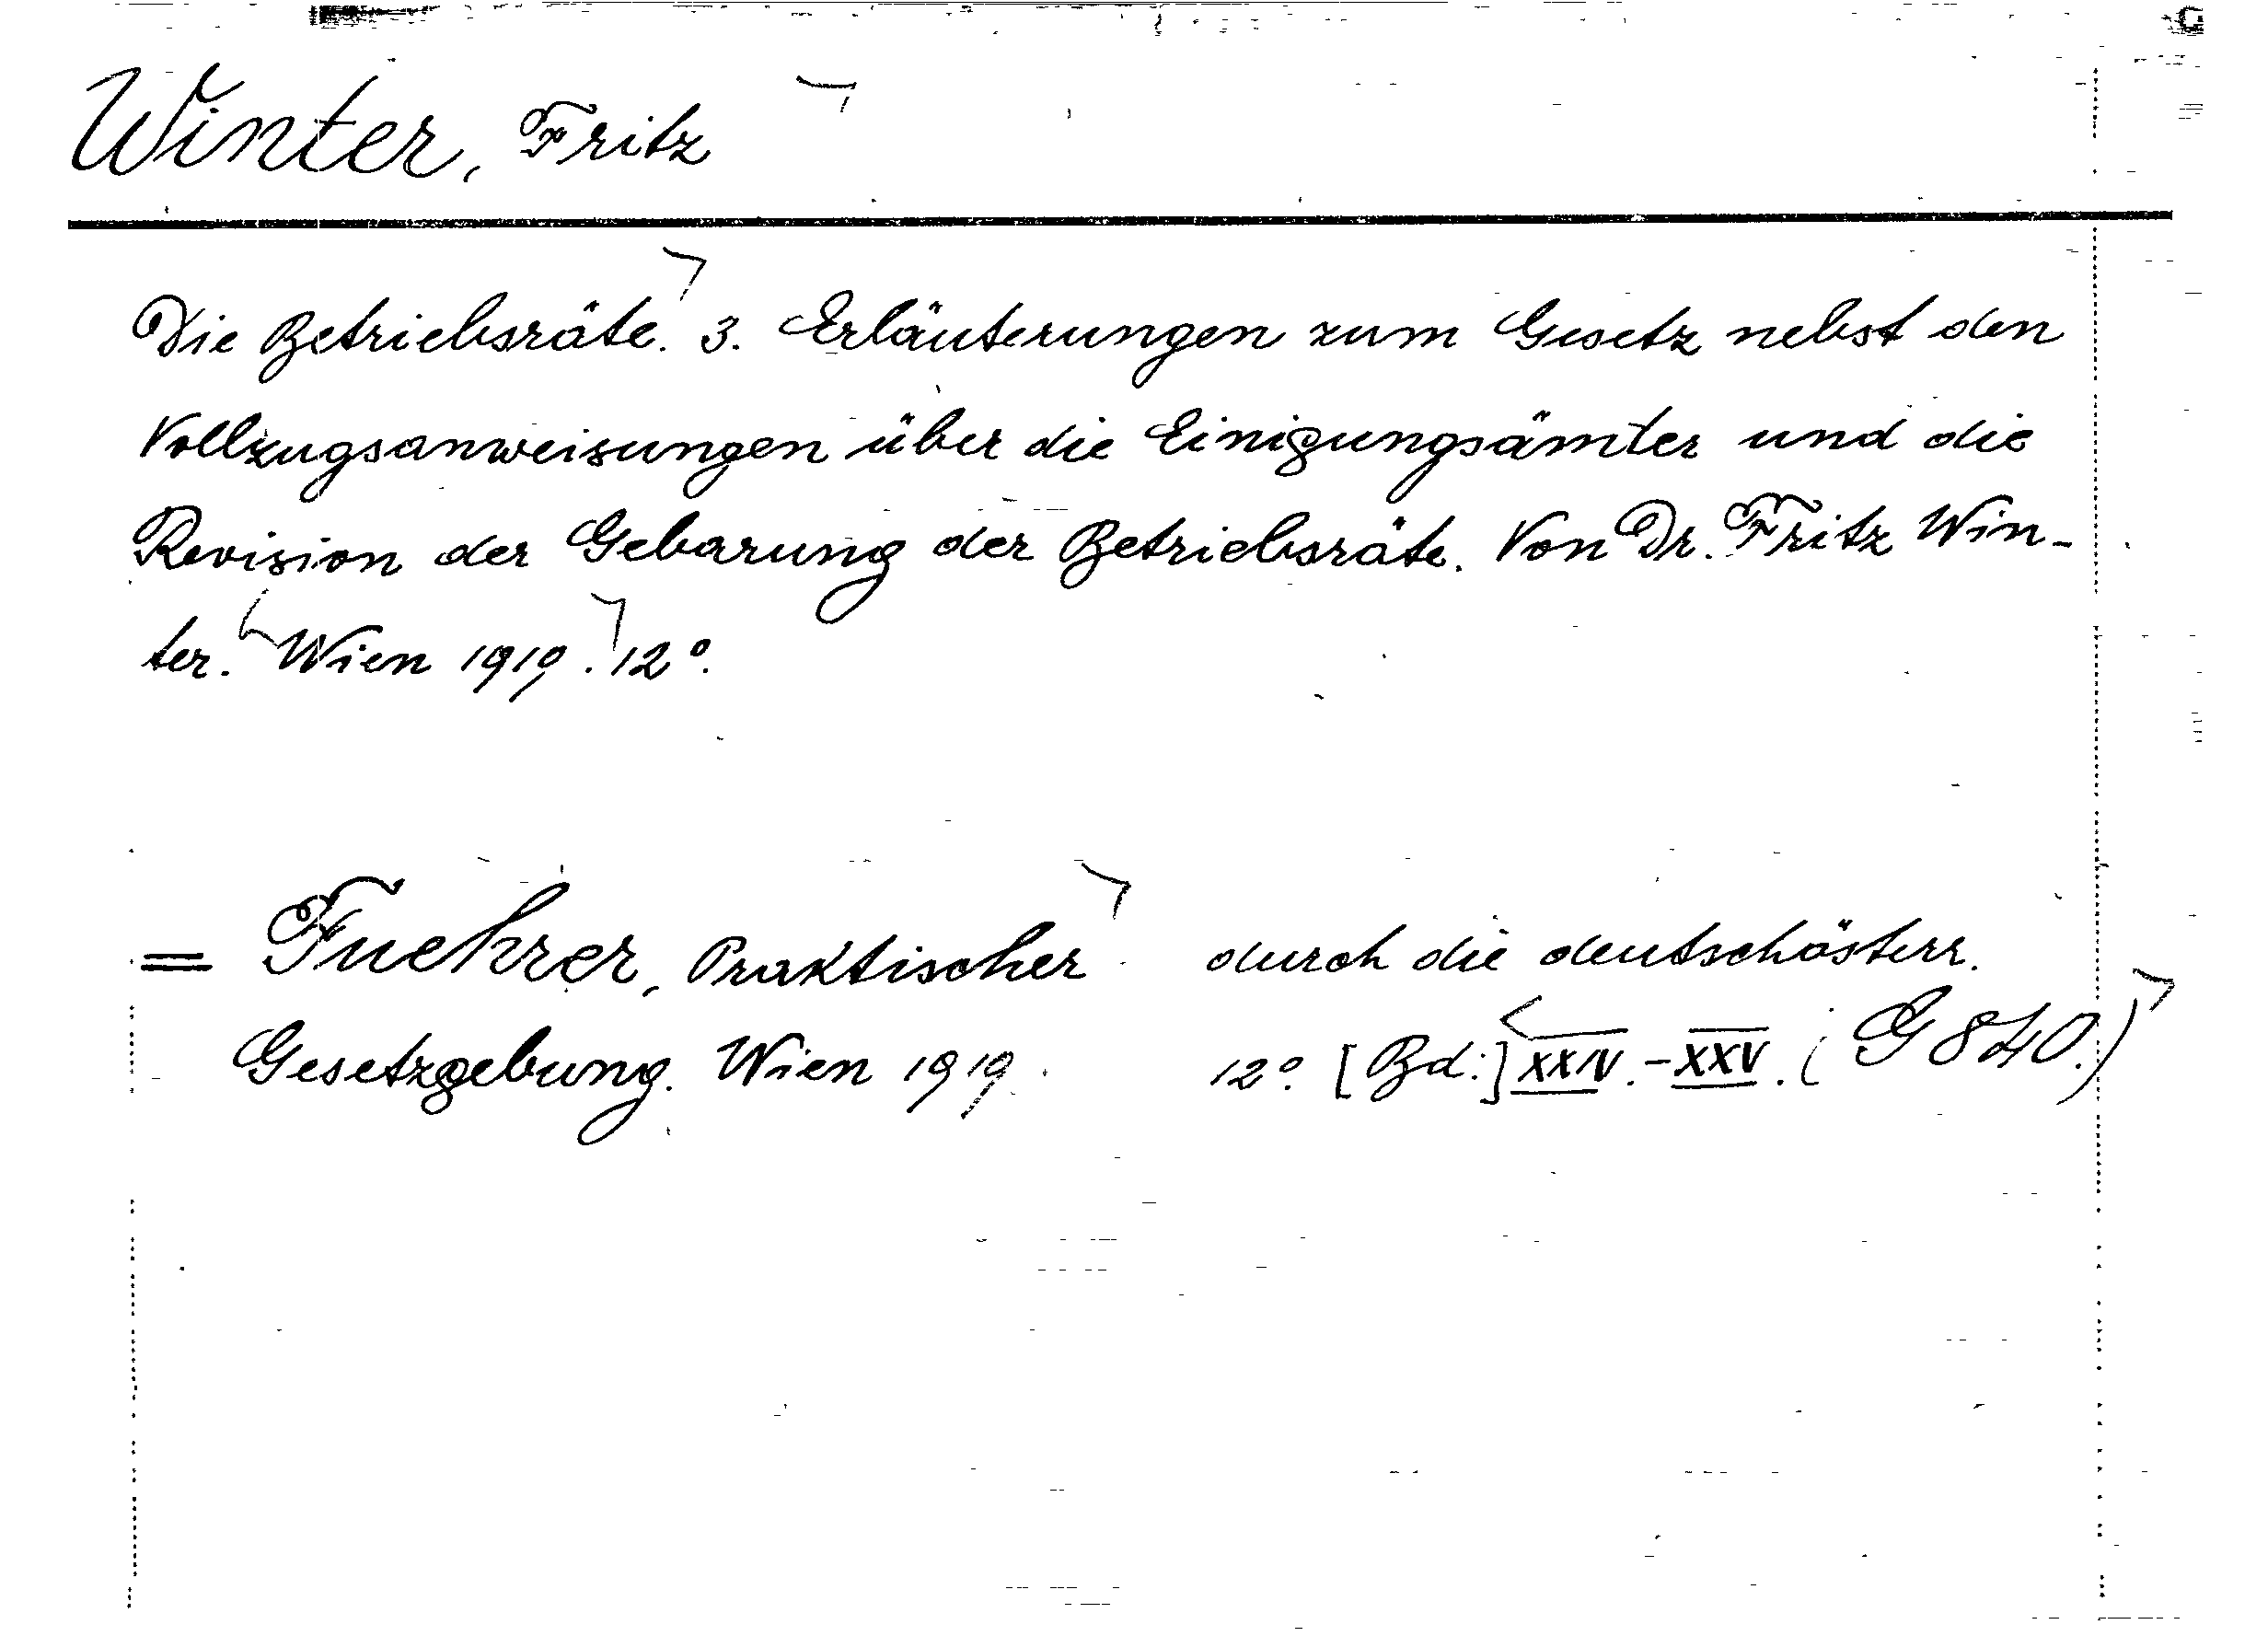 Winter, Fritz
Die Betriebsräte. 3. Erläuterungen zum Gesetz nebst den
Vollzugsanweisungen über die Einigungsämter und die
Revision der Gebarung der Betriebsräte. Von Dr. Fritz Win-
ter. Wien 1919. 12°.
= Fuehrer, Praktischer durch die deutschösterr.
Gesetzgebung. Wien 1919. 12°. [Bd:] XXIV.-XXV. (G 840.)